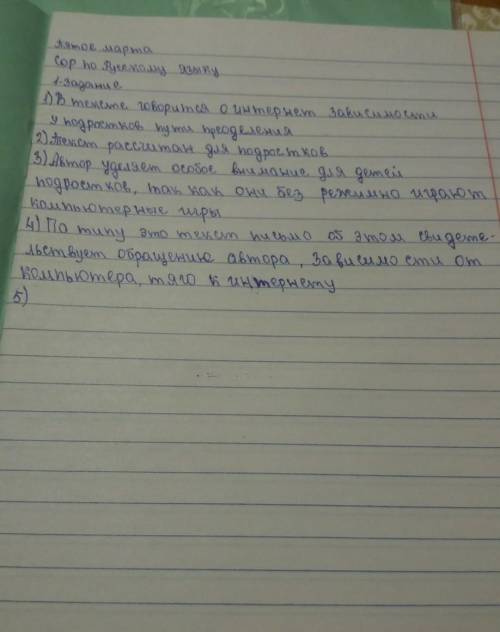 Пятое марта
Сор по Русскому языку
1-задание
1) В тексте говорится о интернет зависимости
у подростков пути преодления
2) Текст рассчитан для подростков
3) Автор уделяет особое внимание для детей
подростков, так как они без режимно играют
компьютерные игры
4) По типу это текст письмо об этом свидете-
льствует обращению автора, зависимости от
компьютера, тяго к интернету
5)